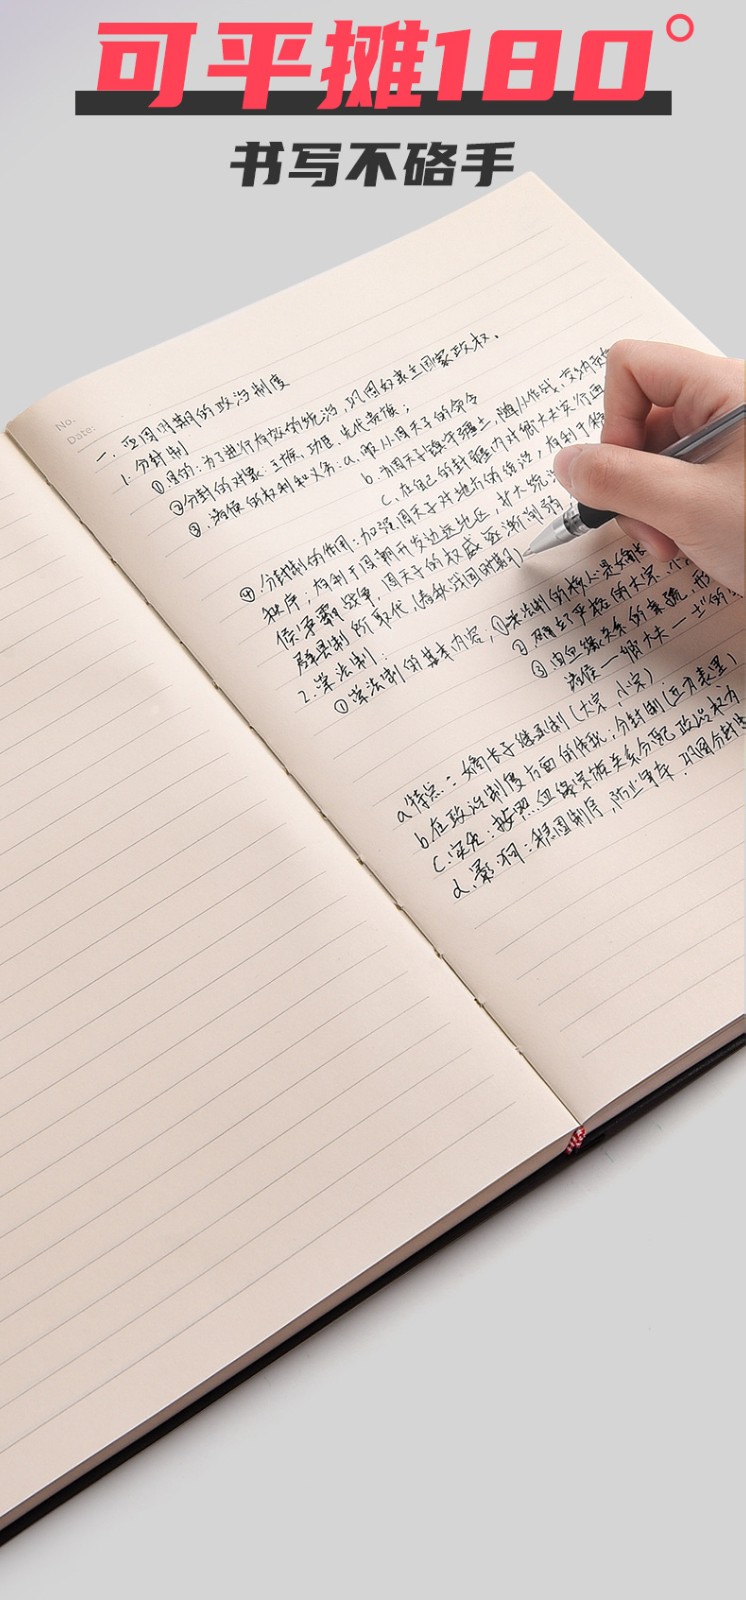 可平摊180°
书写不硌手
No.
Date:
一、西周时期的政治制度
1.分封制
①目的:为了进行有效的统治,巩固奴隶主国家政权。
②分封的对象:王族、功臣、先代贵族;
③.诸侯的权利和义务:a.服从周天子的命令
b.为周天子镇守疆土,随从作战,交纳
c.在自己的封疆内对卿大夫实行再
④分封制的作用:加强周天子对地方的统治,有利于稳
秩序;有利于周朝开发边远地区,扩大统
侯争霸战争,周天子的权威逐渐削弱
郡县制所取代,(春秋战国时期)
2.宗法制:
①宗法制的基本内容,①宗法制的核心是嫡长
②确立了严格的大宗、小
③由血缘关系的亲疏,形
诸侯一卿大夫一士的
a特点:嫡长子继承制(大宗,小宗)
b.在政治制度方面的体现:分封制(互为表里)
c.实质:按照血缘宗族关系分配政治权力
d.影响:稳固制序,防止争夺.巩固分封